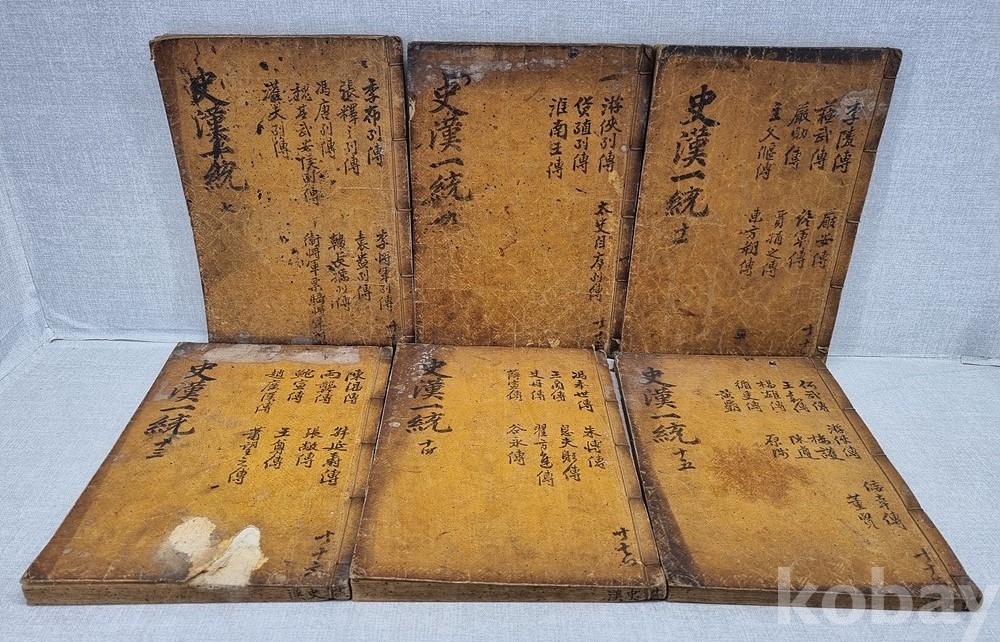 史漢一統
七
季布列傳
張釋之列傳
馮唐列傳
魏其武安侯列傳
灌夫列傳
李將軍列傳
袁盎列傳
韓長孺列傳
衛將軍票騎
史漢一統
九
游俠列傳
貨殖列傳
淮南王傳
太史自序列傳
史漢一統
十一
李陵傳
蘇武傳
嚴助傳
主父偃傳
嚴安傳
終軍傳
賈捐之傳
東方朔傳
史漢一統
十三
陳湯傳
兩龔傳
鮑宣傳
趙廣漢傳
韓延壽傳
張敞傳
王尊傳
蕭望之傳
史漢一統
十四
馮奉世傳
王商傳
史丹傳
薛宣傳
朱博傳
息夫躬傳
翟方進傳
谷永傳
史漢一統
十五
何武傳
王嘉傳
楊雄傳
循吏傳
黃霸
游俠傳
樓護
陳遵
原涉
佞幸傳
董賢
史漢
kobay